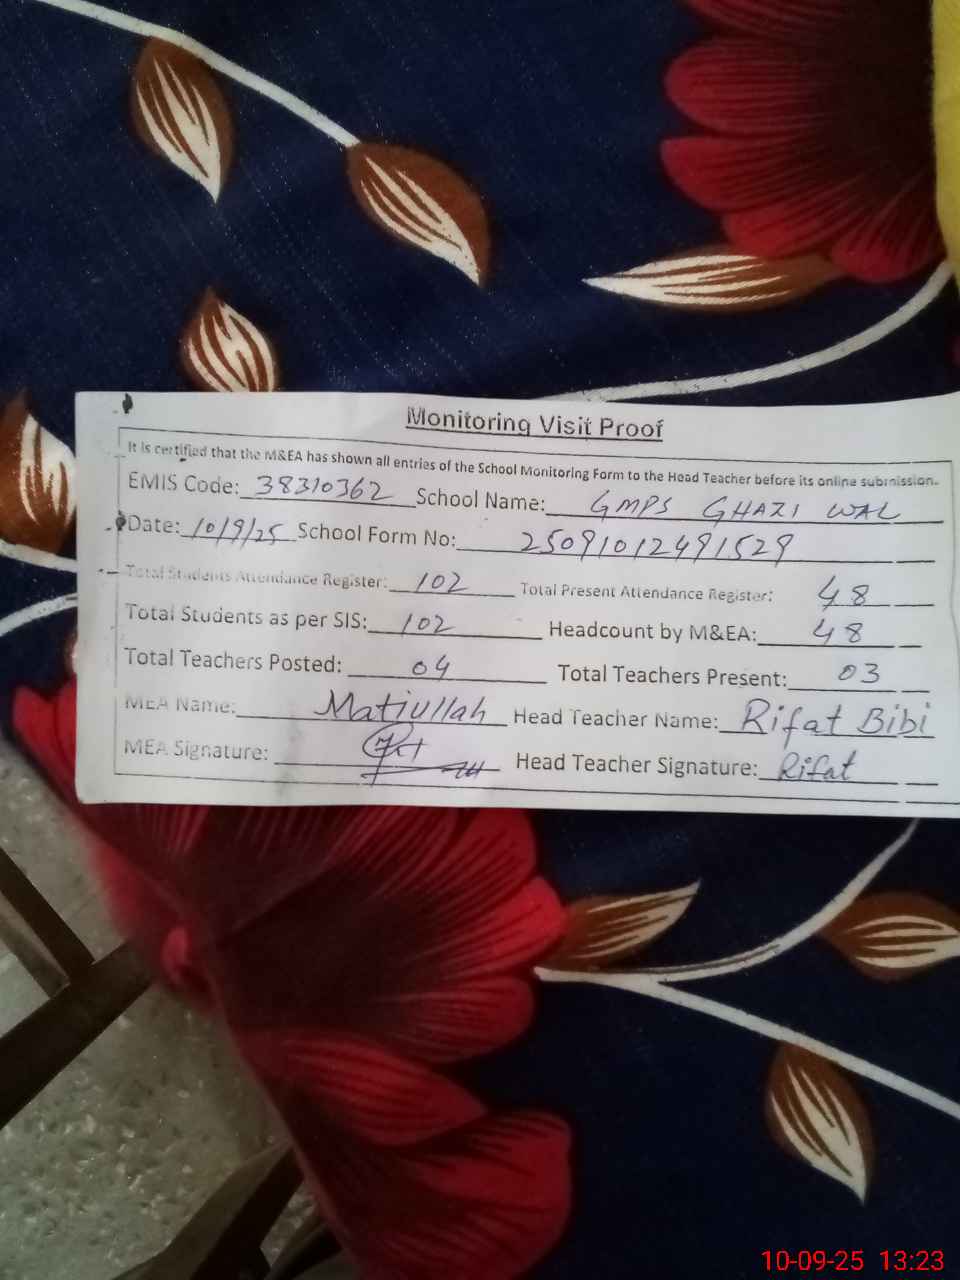 Monitoring Visit Proof
It is certified that the M&EA has shown all entries of the School Monitoring Form to the Head Teacher before its online submission.
EMIS Code: 38310362 School Name: GMPS GHAZI WAL
Date: 10/9/25 School Form No: 25091012491529
Total Students Attendance Register: 102 Total Present Attendance Register: 48
Total Students as per SIS: 102 Headcount by M&EA: 48
Total Teachers Posted: 04 Total Teachers Present: 03
MEA Name: Matiullah Head Teacher Name: Rifat Bibi
MEA Signature: Head Teacher Signature: Rifat
10-09-25 13:23